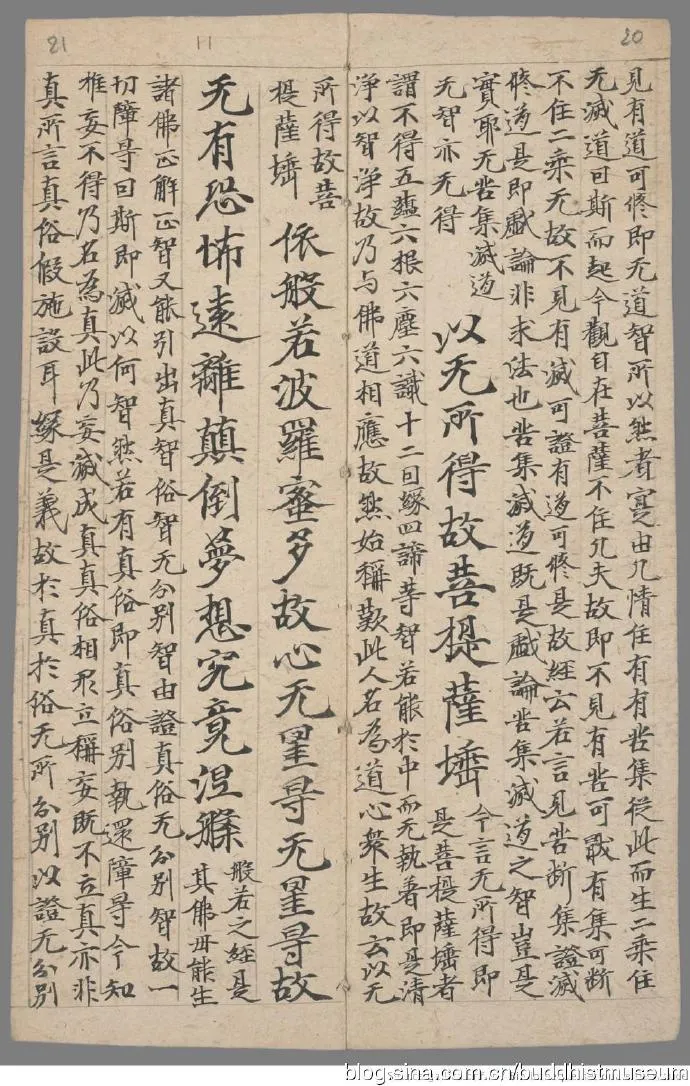 20
見有道可修即无道智所以然者寔由凡情住有有苦集從此而生二乘住
无滅道因斯而起今觀自在菩薩不住凡夫故即不見有苦可厭有集可断
不住二乘无故不見有滅可證有道可修是故經云若言見苦断集證滅
修道是即戲論非求法也苦集滅道既是戲論苦集滅道之智豈是
實耶无苦集滅道
无智亦无得
以无所得故菩提薩埵
今言无所得即
是菩提薩埵者
謂不得五蘊六根六塵六識十二因緣四諦等智若能於中而无執著即是清
淨以智淨故乃与佛道相應故然始稱歎此人名為道心衆生故云以无
所得故菩
提薩埵
依般若波羅蜜多故心无罣导无罣导故
11
无有恐怖遠離顛倒夢想究竟涅槃
般若之經是
其佛母能生
諸佛正解正智又能引出真智俗智无分别智由證真俗无分别智故一
切障导因斯即滅以何智然若有真俗即真俗别執還障导今知
唯妄不得乃名為真此乃妄滅成真真俗相形立稱妄既不立真亦非
真所言真俗假施設耳緣是義故於真於俗无所分别以證无分别
21
blog.sina.com.cn/buddhistmuseum